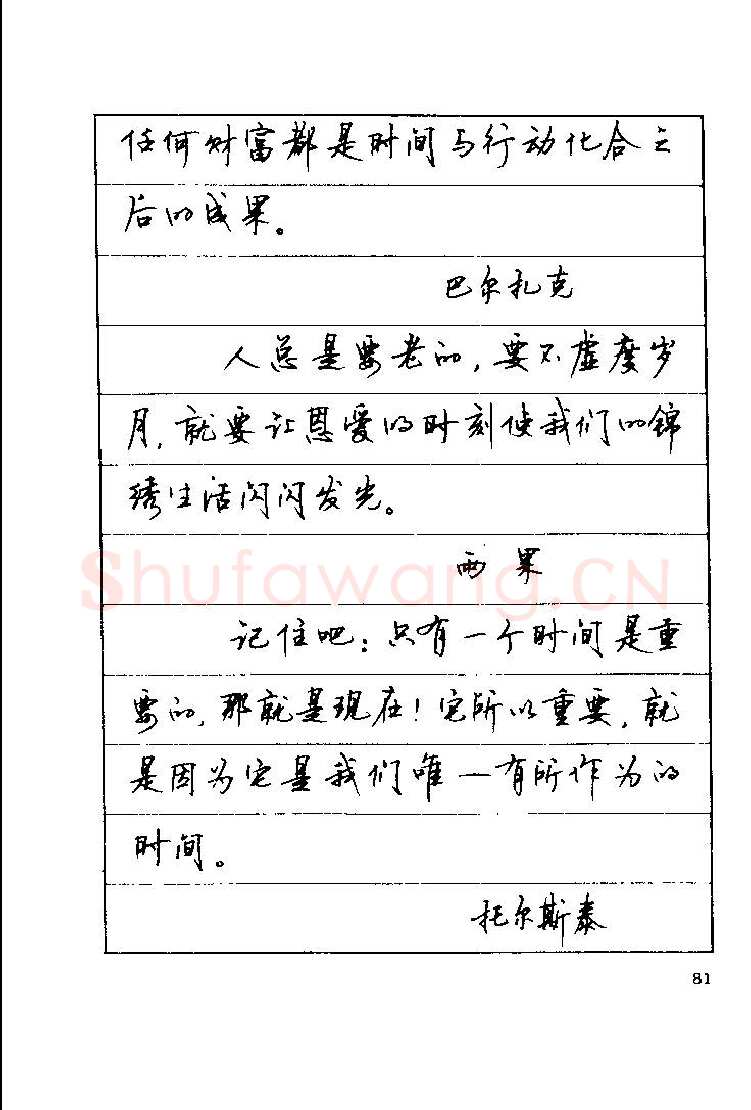 任何财富都是时间与行动化合之
后的成果。
巴尔扎克
人总是要老的，要不虚度岁
月，就要让恩爱的时刻使我们的锦
绣生活闪闪发光。
雨果
Shufawang.CN
记住吧：只有一个时间是重
要的，那就是现在！它所以重要，就
是因为它是我们唯一有所作为的
时间。
托尔斯泰
81